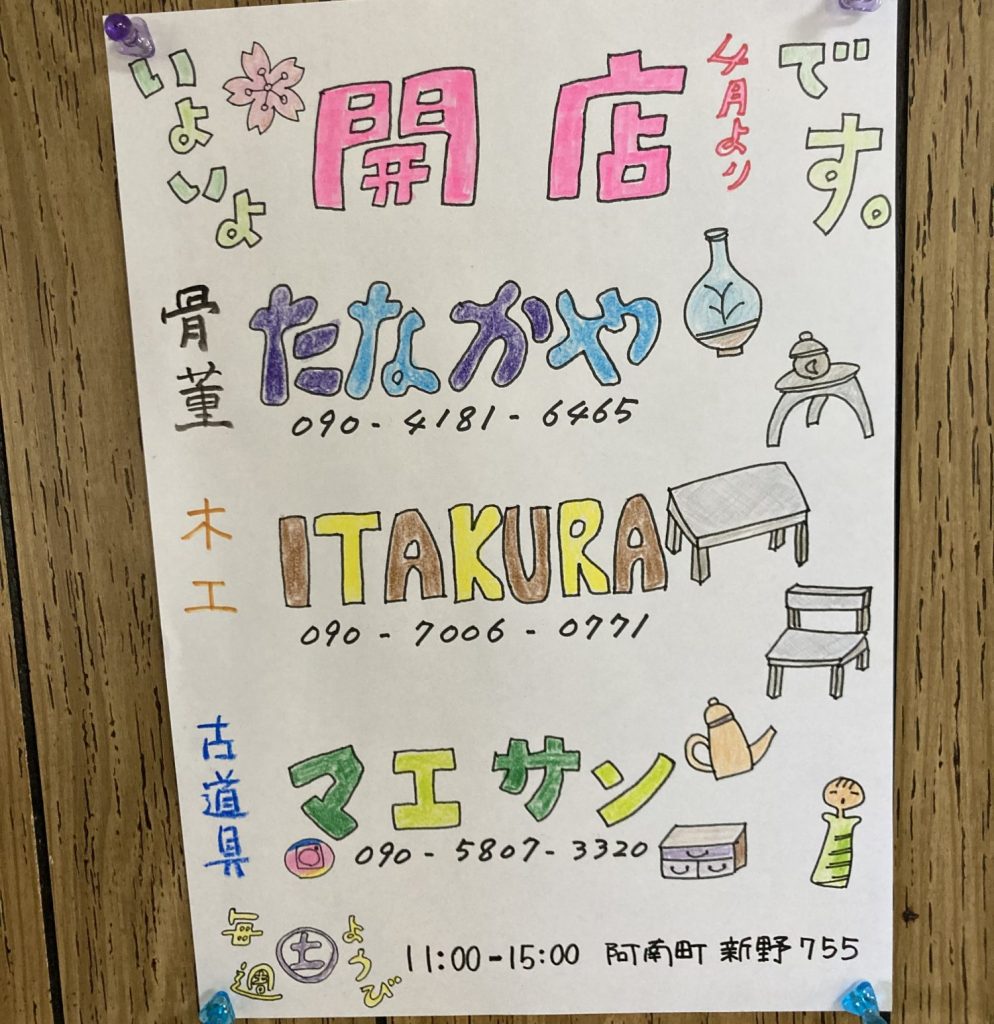 いよいよ
開店
4月より
です。
骨董
たなかや
090-4181-6465
木工
ITAKURA
090-7006-0771
古道具
マエサン
090-5807-3320
毎週
土
ようび
11:00-15:00 阿南町 新野755